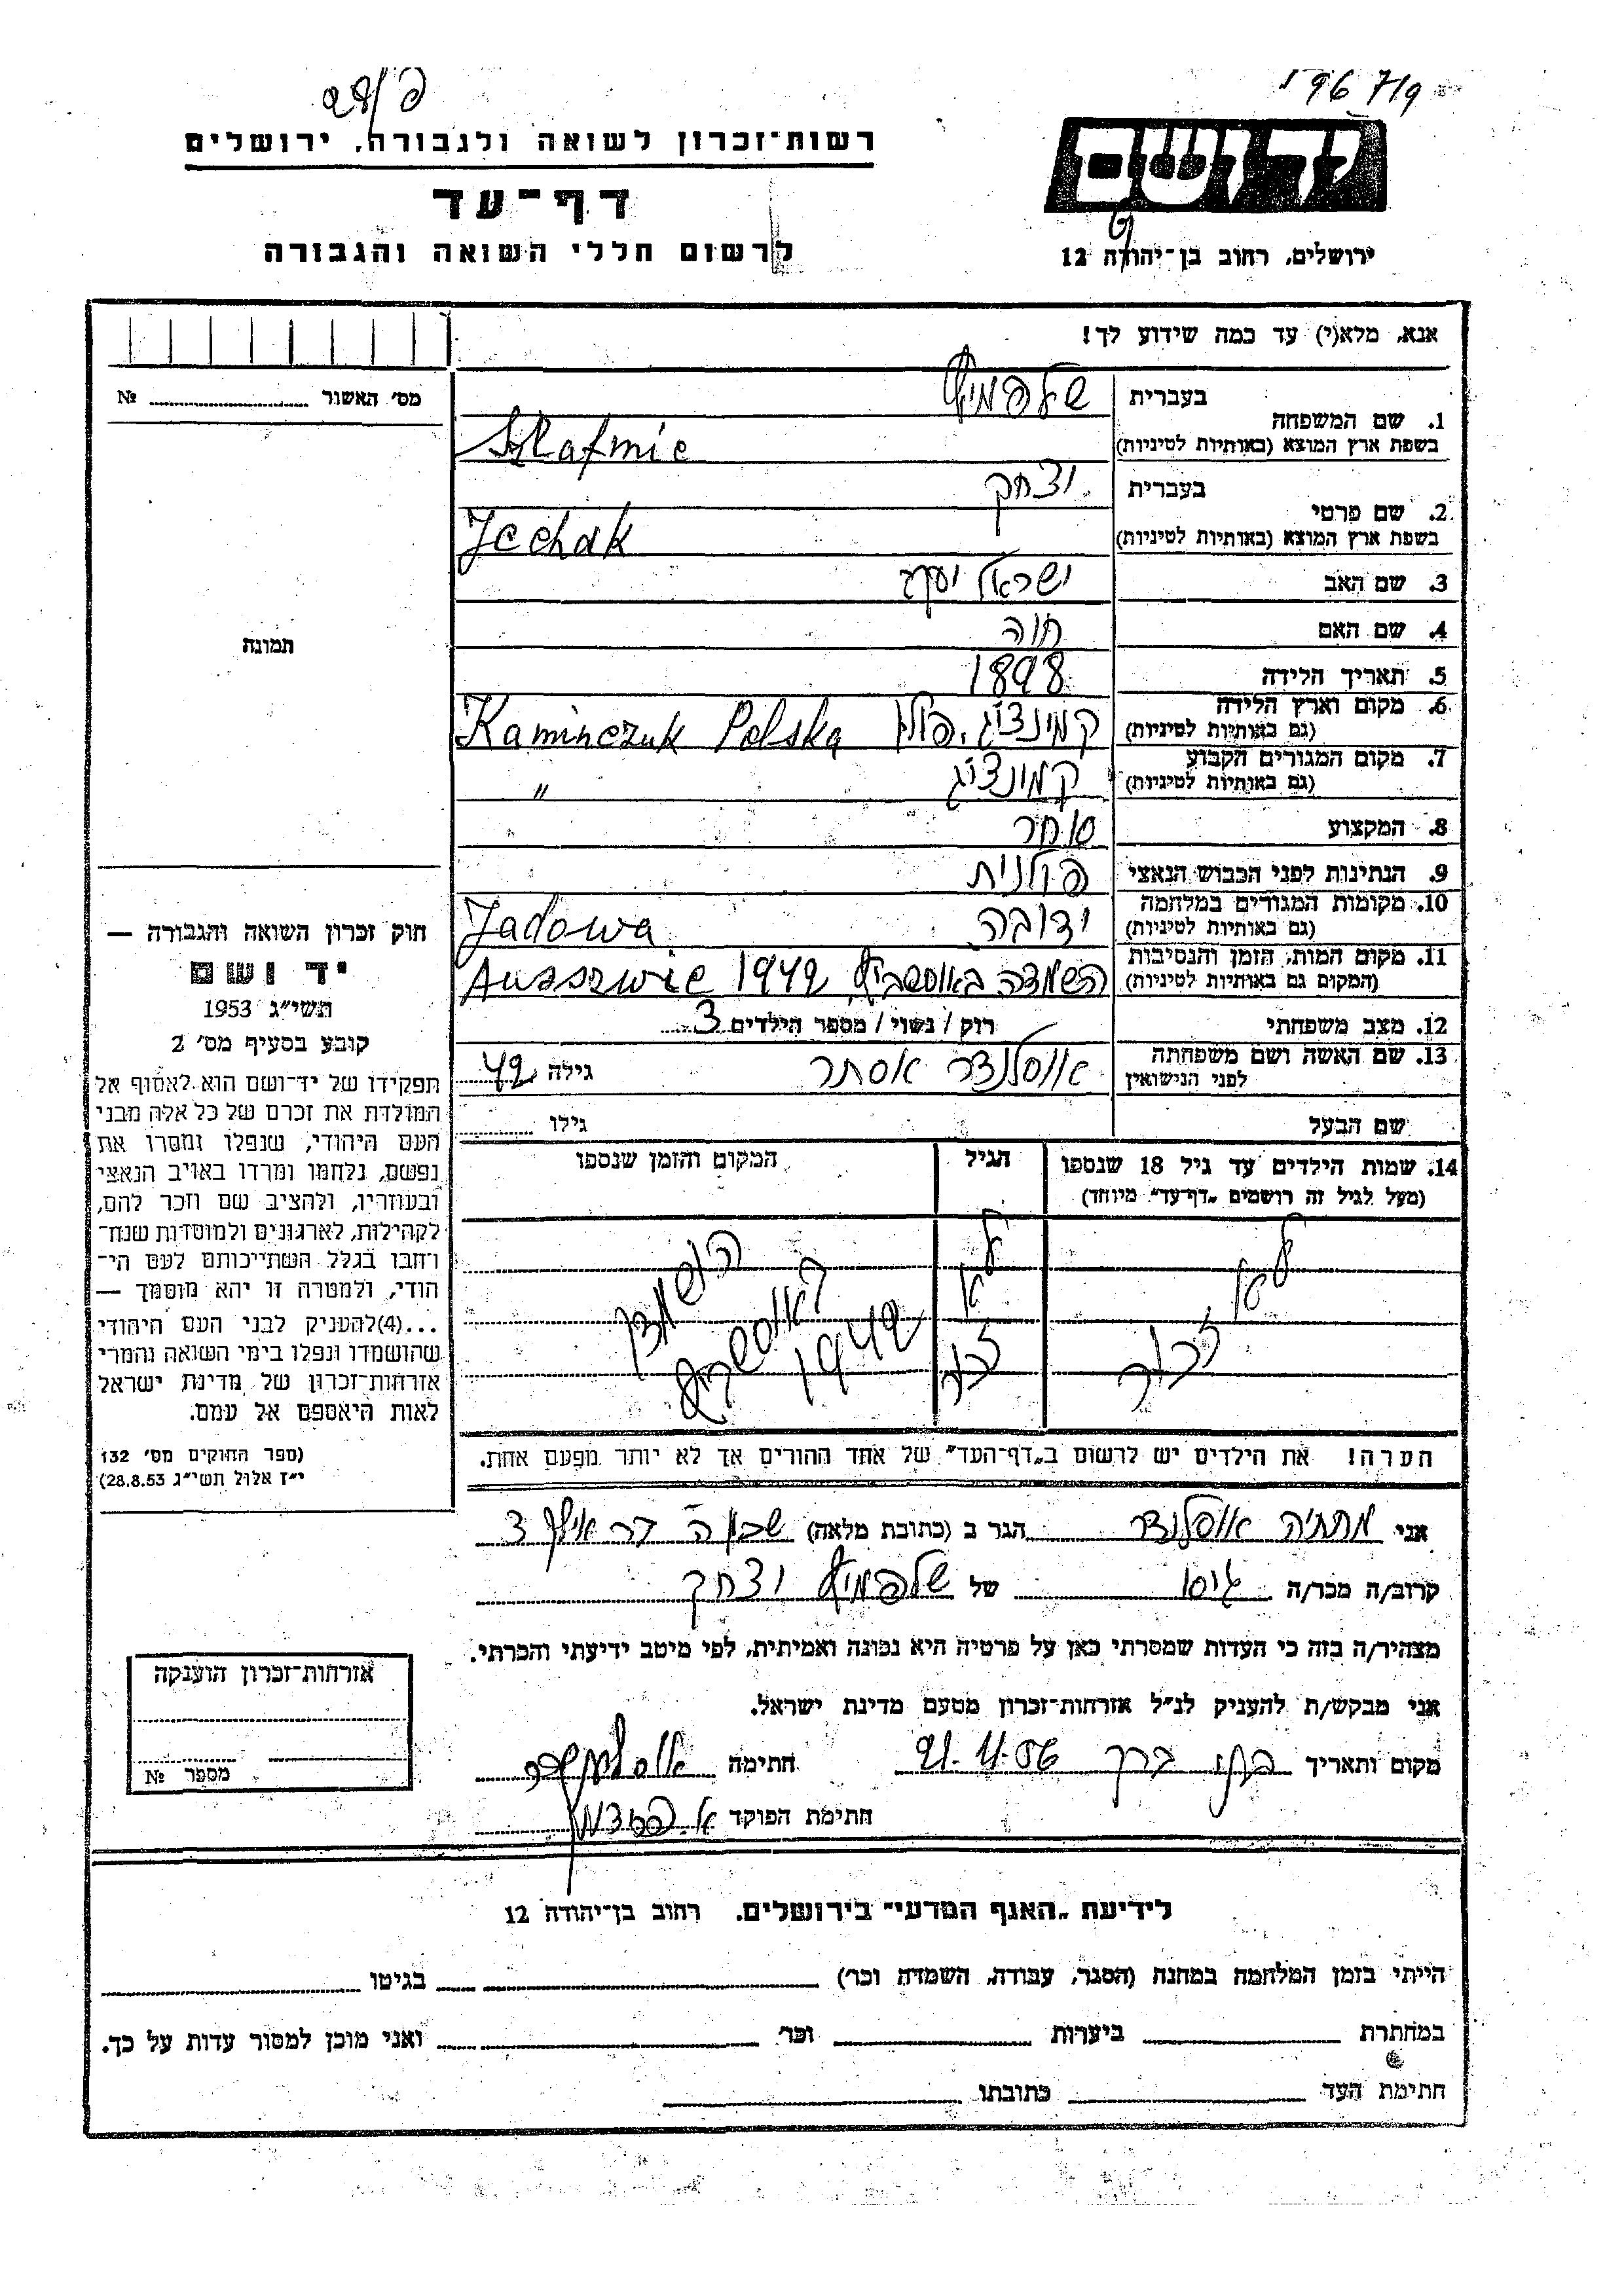 רשות־זכרון לשואה ולגבורה, ירושלים
דף־עד
לרשום חללי השואה והגבורה
יד ושם
ירושלים, רחוב בן־יהודה 12
אנא, מלא(י) עד כמה שידוע לך!
מס׳ האשור № 
1. שם המשפחה בעברית שלפמיץ
בשפת ארץ המוצא (באותיות לטיניות) Szlafmic
2. שם פרטי בעברית יצחק
בשפת ארץ המוצא (באותיות לטיניות) Jcchak
3. שם האב ישראל יעקב
4. שם האם חוה
5. תאריך הלידה 1898
6. מקום וארץ הלידה (גם באותיות לטיניות) קמינצ'ג, פולין Kaminczuk Polska
7. מקום המגורים הקבוע (גם באותיות לטיניות) קמינצ'ג "
8. המקצוע סוחר
9. הנתינות לפני הכבוש הנאצי פולנית
10. מקומות המגורים במלחמה (גם באותיות לטיניות) ידובה Jadowa
11. מקום המות, הזמן והנסיבות (המקום גם באותיות לטיניות) השמדה באוסשביץ 1942 Auszswic
12. מצב משפחתי רוק / נשוי / מספר הילדים 3
13. שם האשה ושם משפחתה לפני הנישואין אוסלנדר אסתר גילה 42
שם הבעל גילו
14. שמות הילדים עד גיל 18 שנספו (מעל לגיל זה רושמים „דף־עד" מיוחד) הגיל המקום והזמן שנספו
לא זכור לא זכור הושמדו באוסשביץ 1942
הערה! את הילדים יש לרשום ב„דף־העד" של אחד ההורים אך לא יותר מפעם אחת.
תמונה
חוק זכרון השואה והגבורה —
יד ושם
תשי״ג 1953
קובע בסעיף מס׳ 2
תפקידו של יד־ושם הוא לאסוף אל
המולדת את זכרם של כל אלה מבני
העם היהודי, שנפלו ומסרו את
נפשם, נלחמו ומרדו באויב הנאצי
ובעוזריו, ולהציב שם וזכר להם,
לקהילות, לארגונים ולמוסדות שנח־
רחבו בגלל השתייכותם לעם הי־
הודי, ולמטרה זו יהא מוסמך —
...(4)להעניק לבני העם היהודי
שהושמדו ונפלו בימי השואה והמרי
אזרחות־זכרון של מדינת ישראל
לאות היאספם אל עמם.
(ספר החוקים מס׳ 132
י״ז אלול תשי״ג 28.8.53)
אני מתתיה אוסלנדר הגר ב (כתובת מלאה)
קרוב/ה מכר/ה גיסו של שלפמיץ יצחק
מצהיר/ה בזה כי העדות שמסרתי כאן על פרטיה היא נכונה ואמיתית, לפי מיטב ידיעתי והכרתי.
אני מבקש/ת להעניק לנ״ל אזרחות־זכרון מטעם מדינת ישראל.
מקום ותאריך בני ברק 21.11.56 חתימה
חתימת הפוקד
אזרחות־זכרון הוענקה
מספר №
לידיעת „האגף המדעי" בירושלים. רחוב בן־יהודה 12
הייתי בזמן המלחמה במחנה (הסגר, עבודה, השמדה וכר) בגיטו
במחתרת ביערות וכר ואני מוכן למסור עדות על כך.
חתימת העד כתובתו